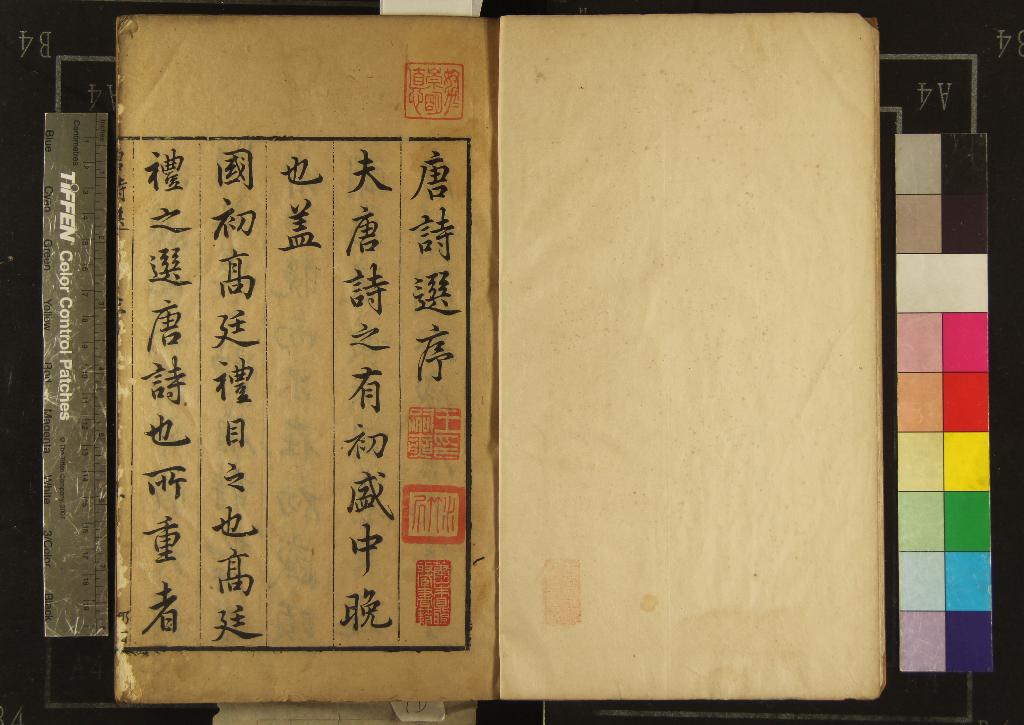 唐詩選序
夫唐詩之有初盛中晚
也盖
國初髙廷禮目之也髙廷
禮之選唐詩也所重者
TIFFEN Color Control Patches
Blue Cyan Green Yellow Red Magenta White 3/Color Black
Centimetres
Inches
B4
A4
A4
B4